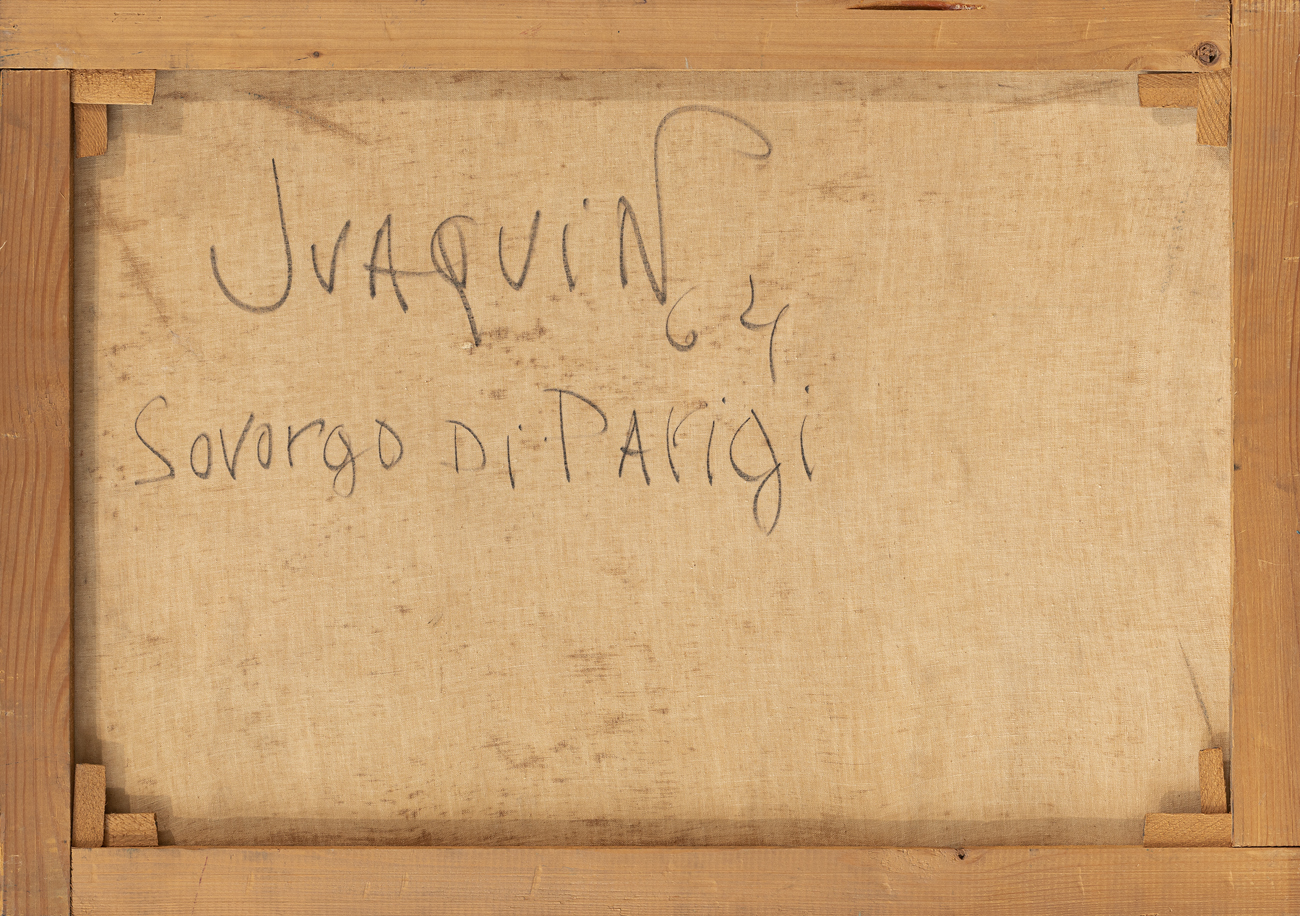 JVAQViN 64
Sovorgo Di PArigi